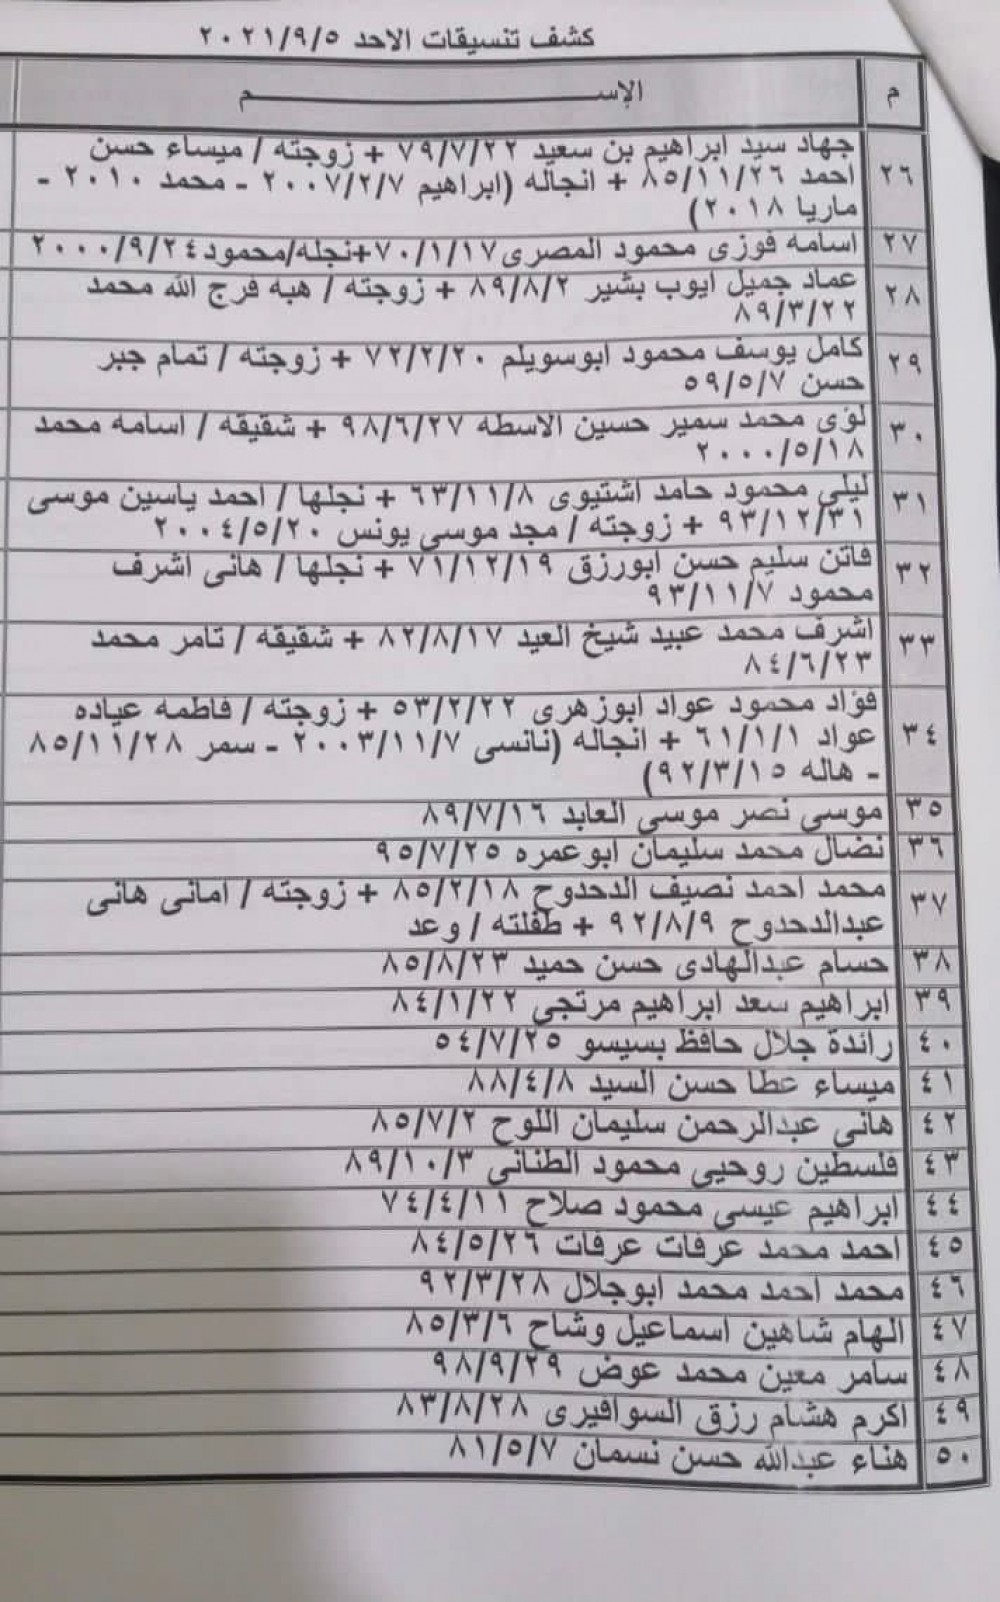 كشف تنسيقات الاحد ٢٠٢١/٩/٥
م الإســـــــم
٢٦ جهاد سيد ابراهيم بن سعيد ٧٩/٧/٢٢ + زوجته / ميساء حسن
احمد ٨٥/١١/٢٦ + انجاله (ابراهيم ٢٠٠٧/٢/٧ - محمد ٢٠١٠ -
ماريا ٢٠١٨)
٢٧ اسامه فوزى محمود المصرى ٧٠/١/١٧+نجله/محمود ٢٠٠٠/٩/٢٤
٢٨ عماد جميل ايوب بشير ٨٩/٨/٢ + زوجته / هبه فرج الله محمد
٨٩/٣/٢٢
٢٩ كامل يوسف محمود ابوسويلم ٧٢/٢/٢٠ + زوجته / تمام جبر
حسن ٥٩/٥/٧
٣٠ لؤى محمد سمير حسين الاسطه ٩٨/٦/٢٧ + شقيقه / اسامه محمد
٢٠٠٠/٥/١٨
٣١ ليلي محمود حامد اشتيوى ٦٣/١١/٨ + نجلها / احمد ياسين موسى
٩٣/١٢/٣١ + زوجته / مجد موسى يونس ٢٠٠٤/٥/٢٠
٣٢ فاتن سليم حسن ابورزق ٧١/١٢/١٩ + نجلها / هانى اشرف
محمود ٩٣/١١/٧
٣٣ اشرف محمد عبيد شيخ العيد ٨٢/٨/١٧ + شقيقه / تامر محمد
٨٤/٦/٢٣
٣٤ فؤاد محمود عواد ابوزهرى ٥٣/٢/٢٢ + زوجته / فاطمه عياده
عواد ٦١/١/١ + انجاله (نانسى ٢٠٠٣/١١/٧ - سمر ٨٥/١١/٢٨
- هاله ٩٢/٣/١٥)
٣٥ موسى نصر موسى العابد ٨٩/٧/١٦
٣٦ نضال محمد سليمان ابوعمره ٩٥/٧/٢٥
٣٧ محمد احمد نصيف الدحدوح ٨٥/٢/١٨ + زوجته / امانى هانى
عبدالدحدوح ٩٢/٨/٩ + طفلته / وعد
٣٨ حسام عبدالهادى حسن حميد ٨٥/٨/٢٣
٣٩ ابراهيم سعد ابراهيم مرتجى ٨٤/١/٢٢
٤٠ رائدة جلال حافظ بسيسو ٥٤/٧/٢٥
٤١ ميساء عطا حسن السيد ٨٨/٤/٨
٤٢ هاني عبدالرحمن سليمان اللوح ٨٥/٧/٢
٤٣ فلسطين روحيي محمود الطنانى ٨٩/١٠/٣
٤٤ ابراهيم عيسى محمود صلاح ٧٤/٤/١١
٤٥ احمد محمد عرفات عرفات ٨٤/٥/٢٦
٤٦ محمد احمد محمد ابوجلال ٩٢/٣/٢٨
٤٧ الهام شاهين اسماعيل وشاح ٨٥/٣/٦
٤٨ سامر معين محمد عوض ٩٨/٩/٢٩
٤٩ اكرم هشام رزق السوافيرى ٨٣/٨/٢٨
٥٠ هناء عبدالله حسن نسمان ٨١/٥/٧